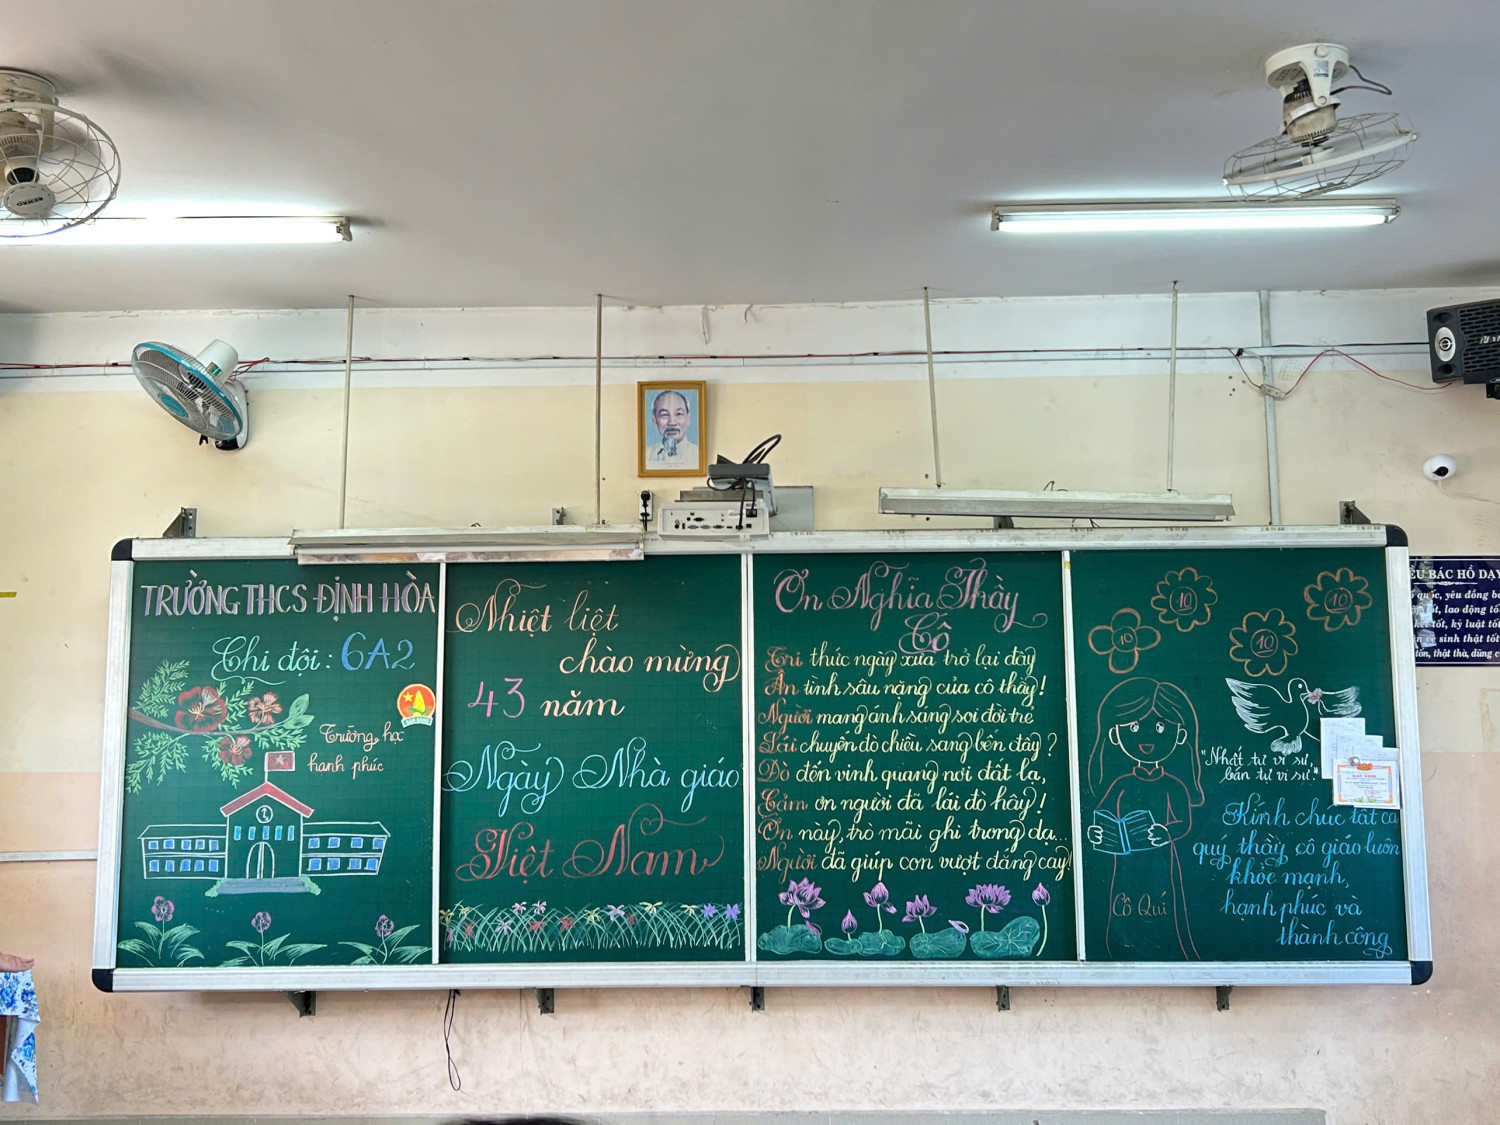 TRƯỜNG THCS ĐỊNH HÒA
Chi đội: 6A2
Trường học
hạnh phúc
Nhiệt liệt
chào mừng
43 năm
Ngày Nhà giáo
Việt Nam
Ơn Nghĩa Thầy
Cô
Tri thức ngày xưa trở lại đây
Ân tình sâu nặng của cô thầy!
Người mang ánh sáng soi đời trẻ
Lái chuyến đò chiều sang bên đây?
Đò đến vinh quang nơi đất lạ,
Cảm ơn người đã lái đò hây!
Ơn này, trò mãi ghi trong dạ...
Người đã giúp con vượt đắng cay!
10
10
10
10
"Nhất tự vi sư,
bán tự vi sư"
Kính chúc tất cả
quý thầy, cô giáo luôn
khỏe mạnh,
hạnh phúc và
thành công
Cô Quí
ỀU BÁC HỒ DẠY
quốc, yêu đồng bà
tốt, lao động tố
kết tốt, kỷ luật tốt
vệ sinh thật tốt
tốn, thật thà, dũng c